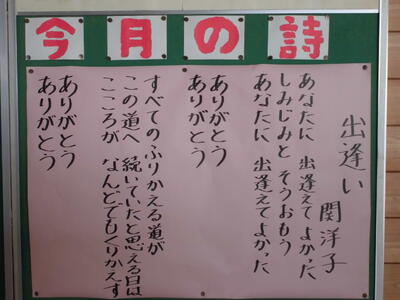 今月の詩
出逢い
関洋子
あなたに 出逢えてよかった
しみじみと そうおもう
あなたに 出逢えてよかった
ありがとう
ありがとう
すべてのふりかえる道が
この道へ 続いていたと思える日は
こころが なんどでもくりかえす
ありがとう
ありがとう